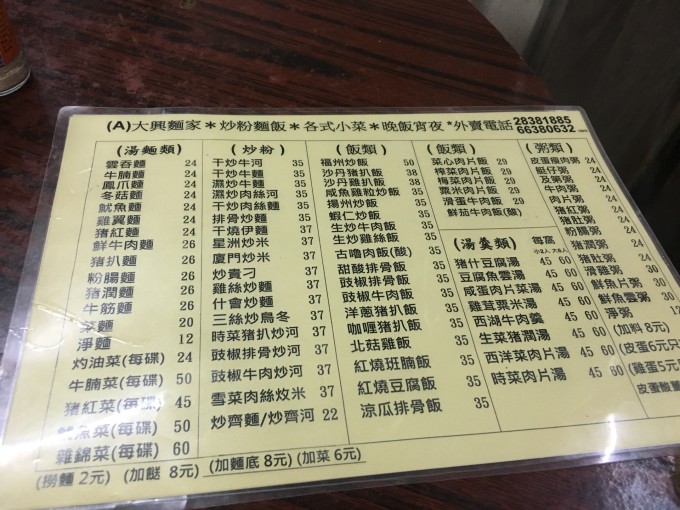 (A)大興麵家＊炒粉麵飯＊各式小菜＊晚飯宵夜*外賣電話 28381885
66380632
(湯麵類)
雲吞麵 24
牛腩麵 24
鳳爪麵 24
冬菇麵 24
魷魚麵 24
雞翼麵 24
猪紅麵 24
鮮牛肉麵 26
猪扒麵 26
粉腸麵 26
猪潤麵 26
牛筋麵 26
菜麵 20
淨麵 12
灼油菜(每碟) 24
牛腩菜(每碟) 50
猪紅菜(每碟) 45
魷魚菜(每碟) 50
雜錦菜(每碟) 60
(炒粉)
干炒牛河 35
干炒牛麵 35
濕炒牛河 35
濕炒肉絲河 35
干炒肉絲麵 35
排骨炒麵 35
干燒伊麵 35
星洲炒米 37
廈門炒米 37
炒貴刁 37
雞絲炒麵 37
什會炒麵 37
三絲炒烏冬 37
時菜猪扒炒河 37
豉椒排骨炒河 37
豉椒牛肉炒河 37
雪菜肉絲炆米 37
炒齋麵/炒齋河 22
(飯類)
福州炒飯 50
沙丹猪扒飯 38
沙丹雞扒飯 38
咸魚雞粒炒飯 35
揚州炒飯 35
蝦仁炒飯 35
生炒牛肉飯 35
生炒雞絲飯 35
古嚕肉飯(酸) 35
甜酸排骨飯 35
豉椒排骨飯 35
豉椒牛肉飯 35
洋蔥猪扒飯 35
咖喱猪扒飯 35
北菇雞飯 35
紅燒班腩飯 35
紅燒豆腐飯 35
涼瓜排骨飯 35
(飯類)
菜心肉片飯 29
榨菜肉片飯 29
梅菜肉片飯 29
粟米肉片飯 29
滑蛋牛肉飯 29
鮮茄牛肉飯(酸)
(湯羹類) 每窩
猪什豆腐湯 45 60
豆腐魚雲湯 45 60
咸蛋肉片菜湯 45 60
雞茸粟米湯 45 60
西湖牛肉羹 45 60
生菜猪潤湯 45 60
西洋菜肉片湯 45 60
時菜肉片湯 45 60
(粥類)
皮蛋瘦肉粥 24
艇仔粥 24
及第粥 24
牛肉粥 24
肉片粥 24
猪紅粥 24
猪肚粥 24
粉腸粥 24
猪潤粥 24
滑雞粥 30
鮮魚片粥 30
鮮魚雲粥 30
淨粥 12
(加料 8元)
(皮蛋 6元
(雞蛋 5元
皮蛋酸薑
(撈麵 2元) (加餸 8元) (加麵底 8元) (加菜 6元)